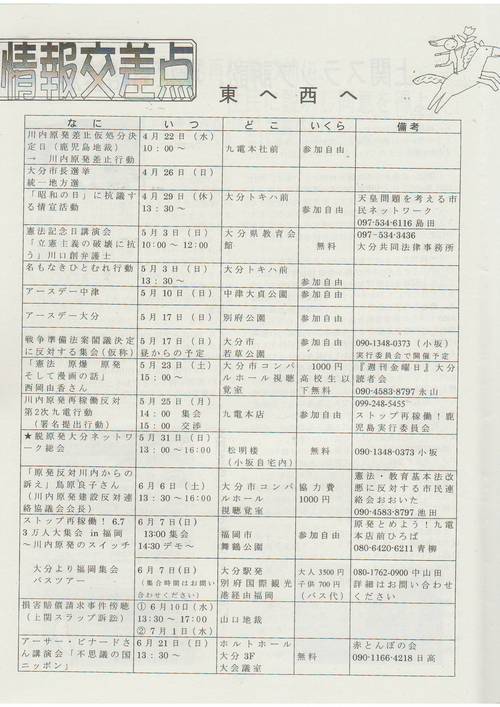 情報交差点
東へ西へ
なに いつ どこ いくら 備考
川内原発差止仮処分決 4月22日（水） 九電本社前 参加自由
定日（鹿児島地裁） 10：00～
→ 川内原発差止行動
大分市長選挙 4月26日（日）
統一地方選
「昭和の日」に抗議す 4月29日（休） 大分トキハ前 参加自由 天皇問題を考える市
る情宣活動 13：30～ 民ネットワーク
097-534-6116 島田
憲法記念日講演会 5月3日（日） 大分県教育会 無料 097-534-3436
「立憲主義の破壊に抗 10:00～12:00 館 大分共同法律事務所
う」川口創弁護士
名もなきひとむれ行動 5月3日（日） 大分トキハ前 参加自由
13：30～
アースデー中津 5月10日（日） 中津大貞公園 参加自由
アースデー大分 5月17日（日） 別府公園 参加自由
戦争準備法案閣議決定 5月17日（日） 大分市 参加自由 090-1348-0373（小坂）
に反対する集会(仮称) 昼からの予定 若草公園 実行委員会で開催予定
「憲法 原爆 原発 5月23日（土） 大分市コンパ 1000円 『週刊金曜日』大分
そして漫画の話」 15：00～ ルホール視聴 高校生以 読者会
西岡由香さん 覚室 下無料 090-4583-8797 永山
川内原発再稼働反対 5月25日（月） 九電本店 参加自由 099-248-5455
第2次九電行動 14：00 集会 ストップ再稼働！鹿
（署名提出行動） 15：00 交渉 児島実行委員会
★脱原発大分ネットワ 5月31日（日） 松明楼 無料 090-1348-0373 小坂
ーク総会 13：00～16:00 （小坂自宅内）
「原発反対川内からの 6月6日（土） 大分市コンパ 協力費 憲法・教育基本法改
訴え」鳥原良子さん 13：30～16:00 ルホール 1000円 悪に反対する市民連
（川内原発建設反対連 視聴覚室 絡会おおいた
絡協議会会長） 090-4583-8797 池田
ストップ再稼働！6.7 6月7日（日） 福岡市 参加自由 原発とめよう！九電
3万人大集会 in 福岡 13:00 集会 舞鶴公園 本店前ひろば
～川内原発のスイッチ 14:30 デモ～ 080-6420-6211 青柳
大分より福岡集会 6月7日（日） 大分駅発 大人3500円 080-1762-0900 中山田
バスツアー （集合時間はお問い 別府国際観光 子供700円 詳細はお問い合わせ
合わせください） 港経由福岡 （バス代） ください
損害賠償請求事件傍聴 ①6月10日（水） 山口地裁
（上関スラップ訴訟） 13:30～17:00
②7月1日（水）
アーサー・ビナードさ 6月21日（日） ホルトホール 無料 赤とんぼの会
ん講演会「不思議の国 13：30～ 大分3F 090-1166-4218 日高
ニッポン」 大会議室